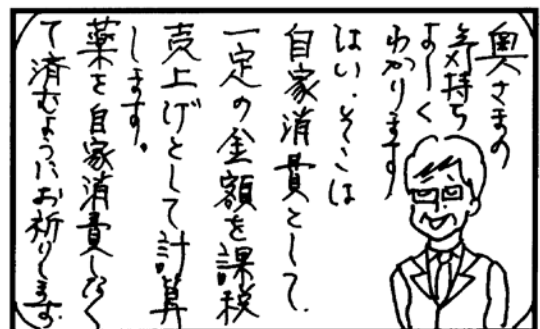 奥さまの
気持ち
よーく
わかります
はい、そこは
自家消費として、
一定の金額を課税
売上げとして計算
します。
薬を自家消費しなく
て済むようにお祈りします。